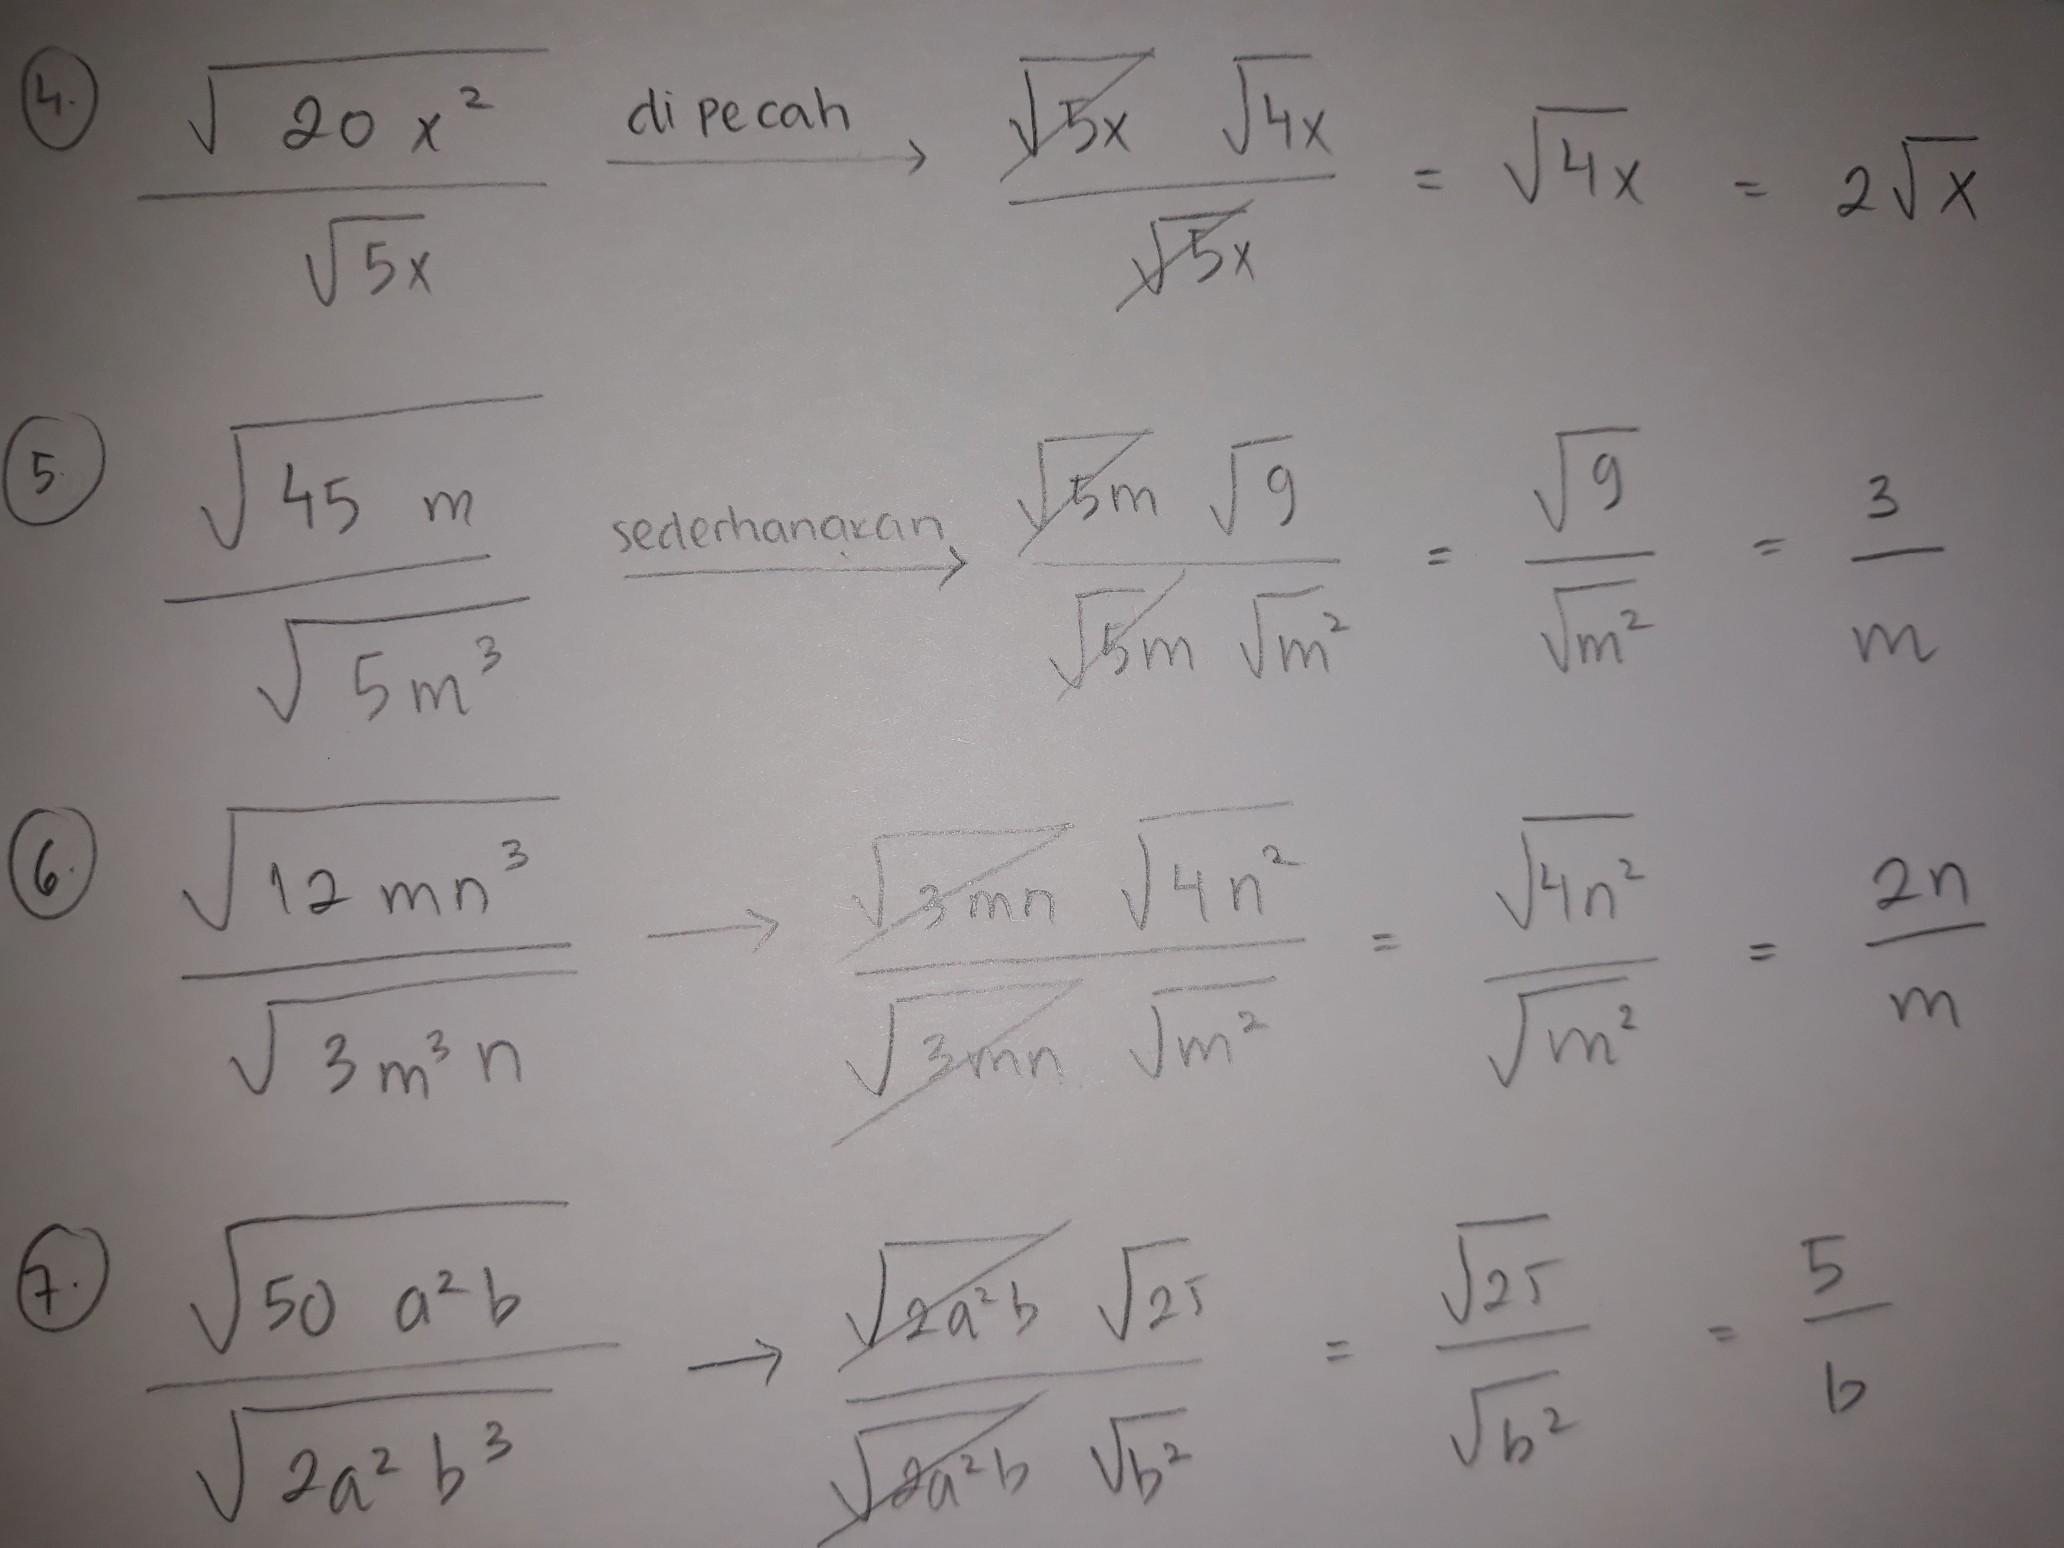 4. √(20x²) / √(5x) di pecah → √(5x) √(4x) / √(5x) = √(4x) = 2√x
5. √(45 m) / √(5m³) sederhanakan → √(5m) √9 / √(5m) √(m²) = √9 / √(m²) = 3/m
6. √(12mn³) / √(3m³n) → √(3mn) √(4n²) / √(3mn) √(m²) = √(4n²) / √(m²) = 2n/m
7. √(50 a²b) / √(2a²b³) → √(2a²b) √25 / √(2a²b) √(b²) = √25 / √(b²) = 5/b